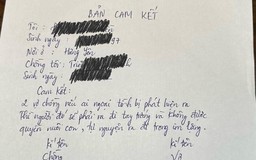 BẢN CAM KẾT
Tôi :
Sinh ngày : 97
Nơi ở : Hưng Yên
Chồng tôi : Trư
Sinh ngày :
Cam kết :
2 vợ chồng nếu ai ngoại tình bị phát hiện ra
thì người đó sẽ phải ra đi tay trắng và không được
quyền nuôi con, tự nguyện ra đi trong im lặng.
kí tên kí tên
Chồng Vợ